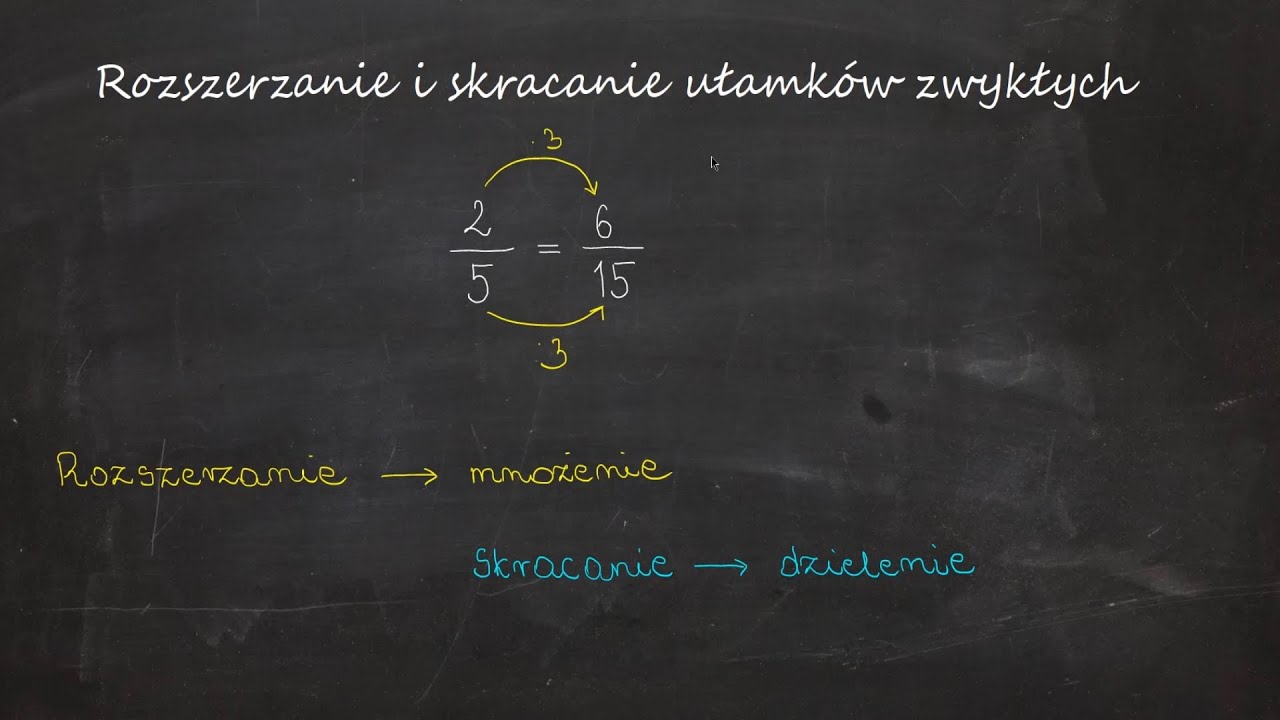 Rozszerzanie i skracanie ułamków zwykłych
· 3
2/5 = 6/15
· 3
Rozszerzanie → mnożenie
Skracanie → dzielenie